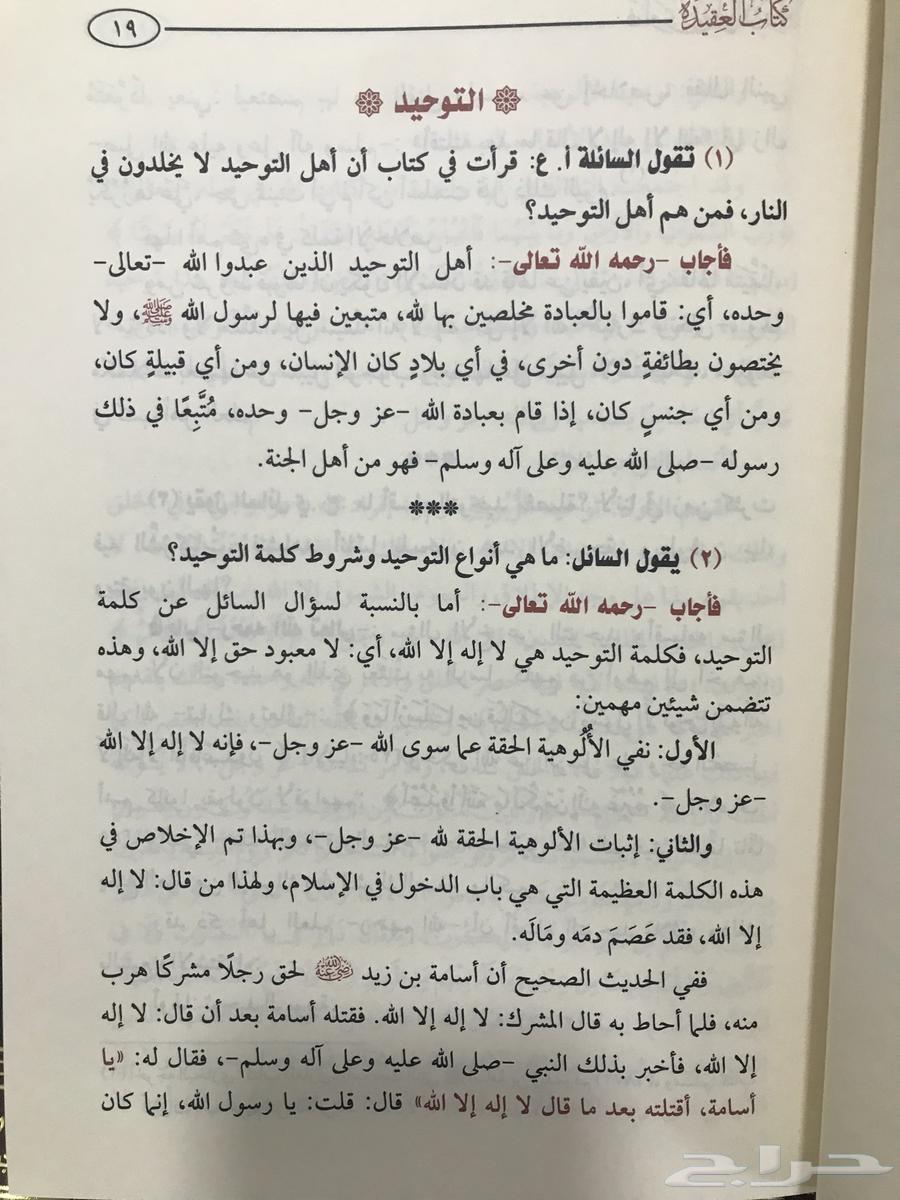 كتاب العقيدة
١٩
التوحيد
(١) تقول السائلة أ. ع: قرأت في كتاب أن أهل التوحيد لا يخلدون في
النار، فمن هم أهل التوحيد؟
فأجاب -رحمه الله تعالى-: أهل التوحيد الذين عبدوا الله -تعالى-
وحده، أي: قاموا بالعبادة مخلصين بها لله، متبعين فيها لرسول الله ﷺ، ولا
يختصون بطائفةٍ دون أخرى، في أي بلادٍ كان الإنسان، ومن أي قبيلةٍ كان،
ومن أي جنسٍ كان، إذا قام بعبادة الله -عز وجل- وحده، مُتَّبِعًا في ذلك
رسوله -صلى الله عليه وعلى آله وسلم- فهو من أهل الجنة.
***
(٢) يقول السائل: ما هي أنواع التوحيد وشروط كلمة التوحيد؟
فأجاب -رحمه الله تعالى-: أما بالنسبة لسؤال السائل عن كلمة
التوحيد، فكلمة التوحيد هي لا إله إلا الله، أي: لا معبود حق إلا الله، وهذه
تتضمن شيئين مهمين:
الأول: نفي الأُلُوهية الحقة عما سوى الله -عز وجل-، فإنه لا إله إلا الله
-عز وجل-.
والثاني: إثبات الألوهية الحقة لله -عز وجل-، وبهذا تم الإخلاص في
هذه الكلمة العظيمة التي هي باب الدخول في الإسلام، ولهذا من قال: لا إله
إلا الله، فقد عَصَمَ دمَه ومَالَه.
ففي الحديث الصحيح أن أسامة بن زيد رضي الله عنه لحق رجلًا مشركًا هرب
منه، فلما أحاط به قال المشرك: لا إله إلا الله. فقتله أسامة بعد أن قال: لا إله
إلا الله، فأخبر بذلك النبي -صلى الله عليه وعلى آله وسلم-، فقال له: «يا
أسامة، أقتلته بعد ما قال لا إله إلا الله» قال: قلت: يا رسول الله، إنما كان
حراج